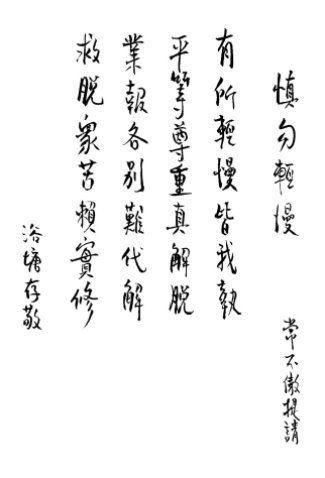 慎勿輕慢
常不傲提請
有所輕慢皆我執
平等尊重真解脫
業報各別難代解
救脫眾苦賴實修
浴塘存敬